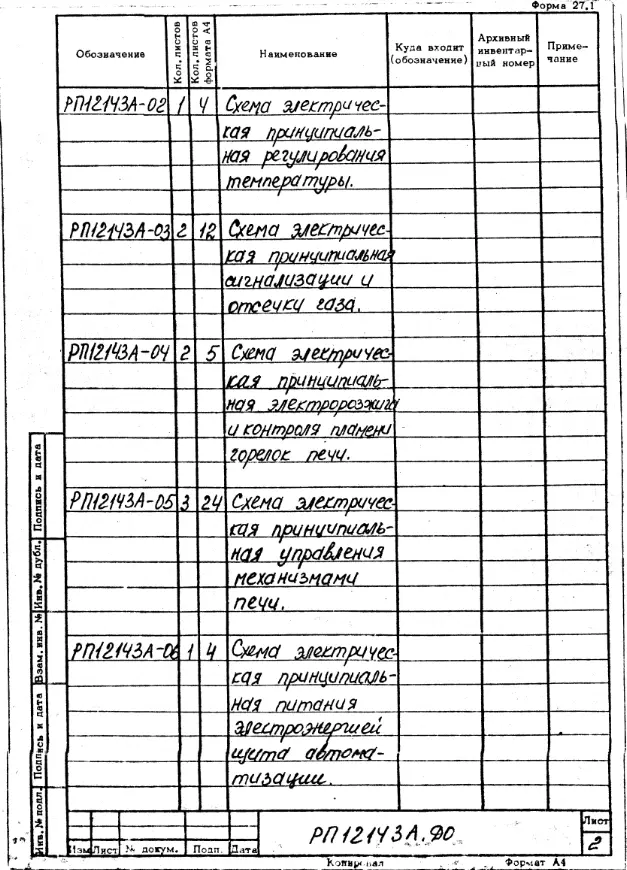 Форма 27.1
Обозначение
Кол. листов
Кол. листов формата А4
Наименование
Куда входит (обозначение)
Архивный инвентарный номер
Примечание
РП12143А-02 1 4 Схема электричес-
кая принципиаль-
ная регулирования
температуры.
РП12143А-03 2 12 Схема электричес-
кая принципиальная
сигнализации и
отсечки газа.
РП12143А-04 2 5 Схема электричес-
кая принципиаль-
ная электророзжига
и контроля пламени
горелок печи.
РП12143А-05 3 24 Схема электричес-
кая принципиаль-
ная управления
механизмами
печи.
РП12143А-06 1 4 Схема электричес-
кая принципиаль-
ная питания
электроэнергией
щита автома-
тизации.
Инв. № подл. Подпись и дата Взам. инв. № Инв. № дубл. Подпись и дата
Изм Лист № докум. Подп. Дата
РП12143А.ФО
Лист
2
Копировал
Формат А4